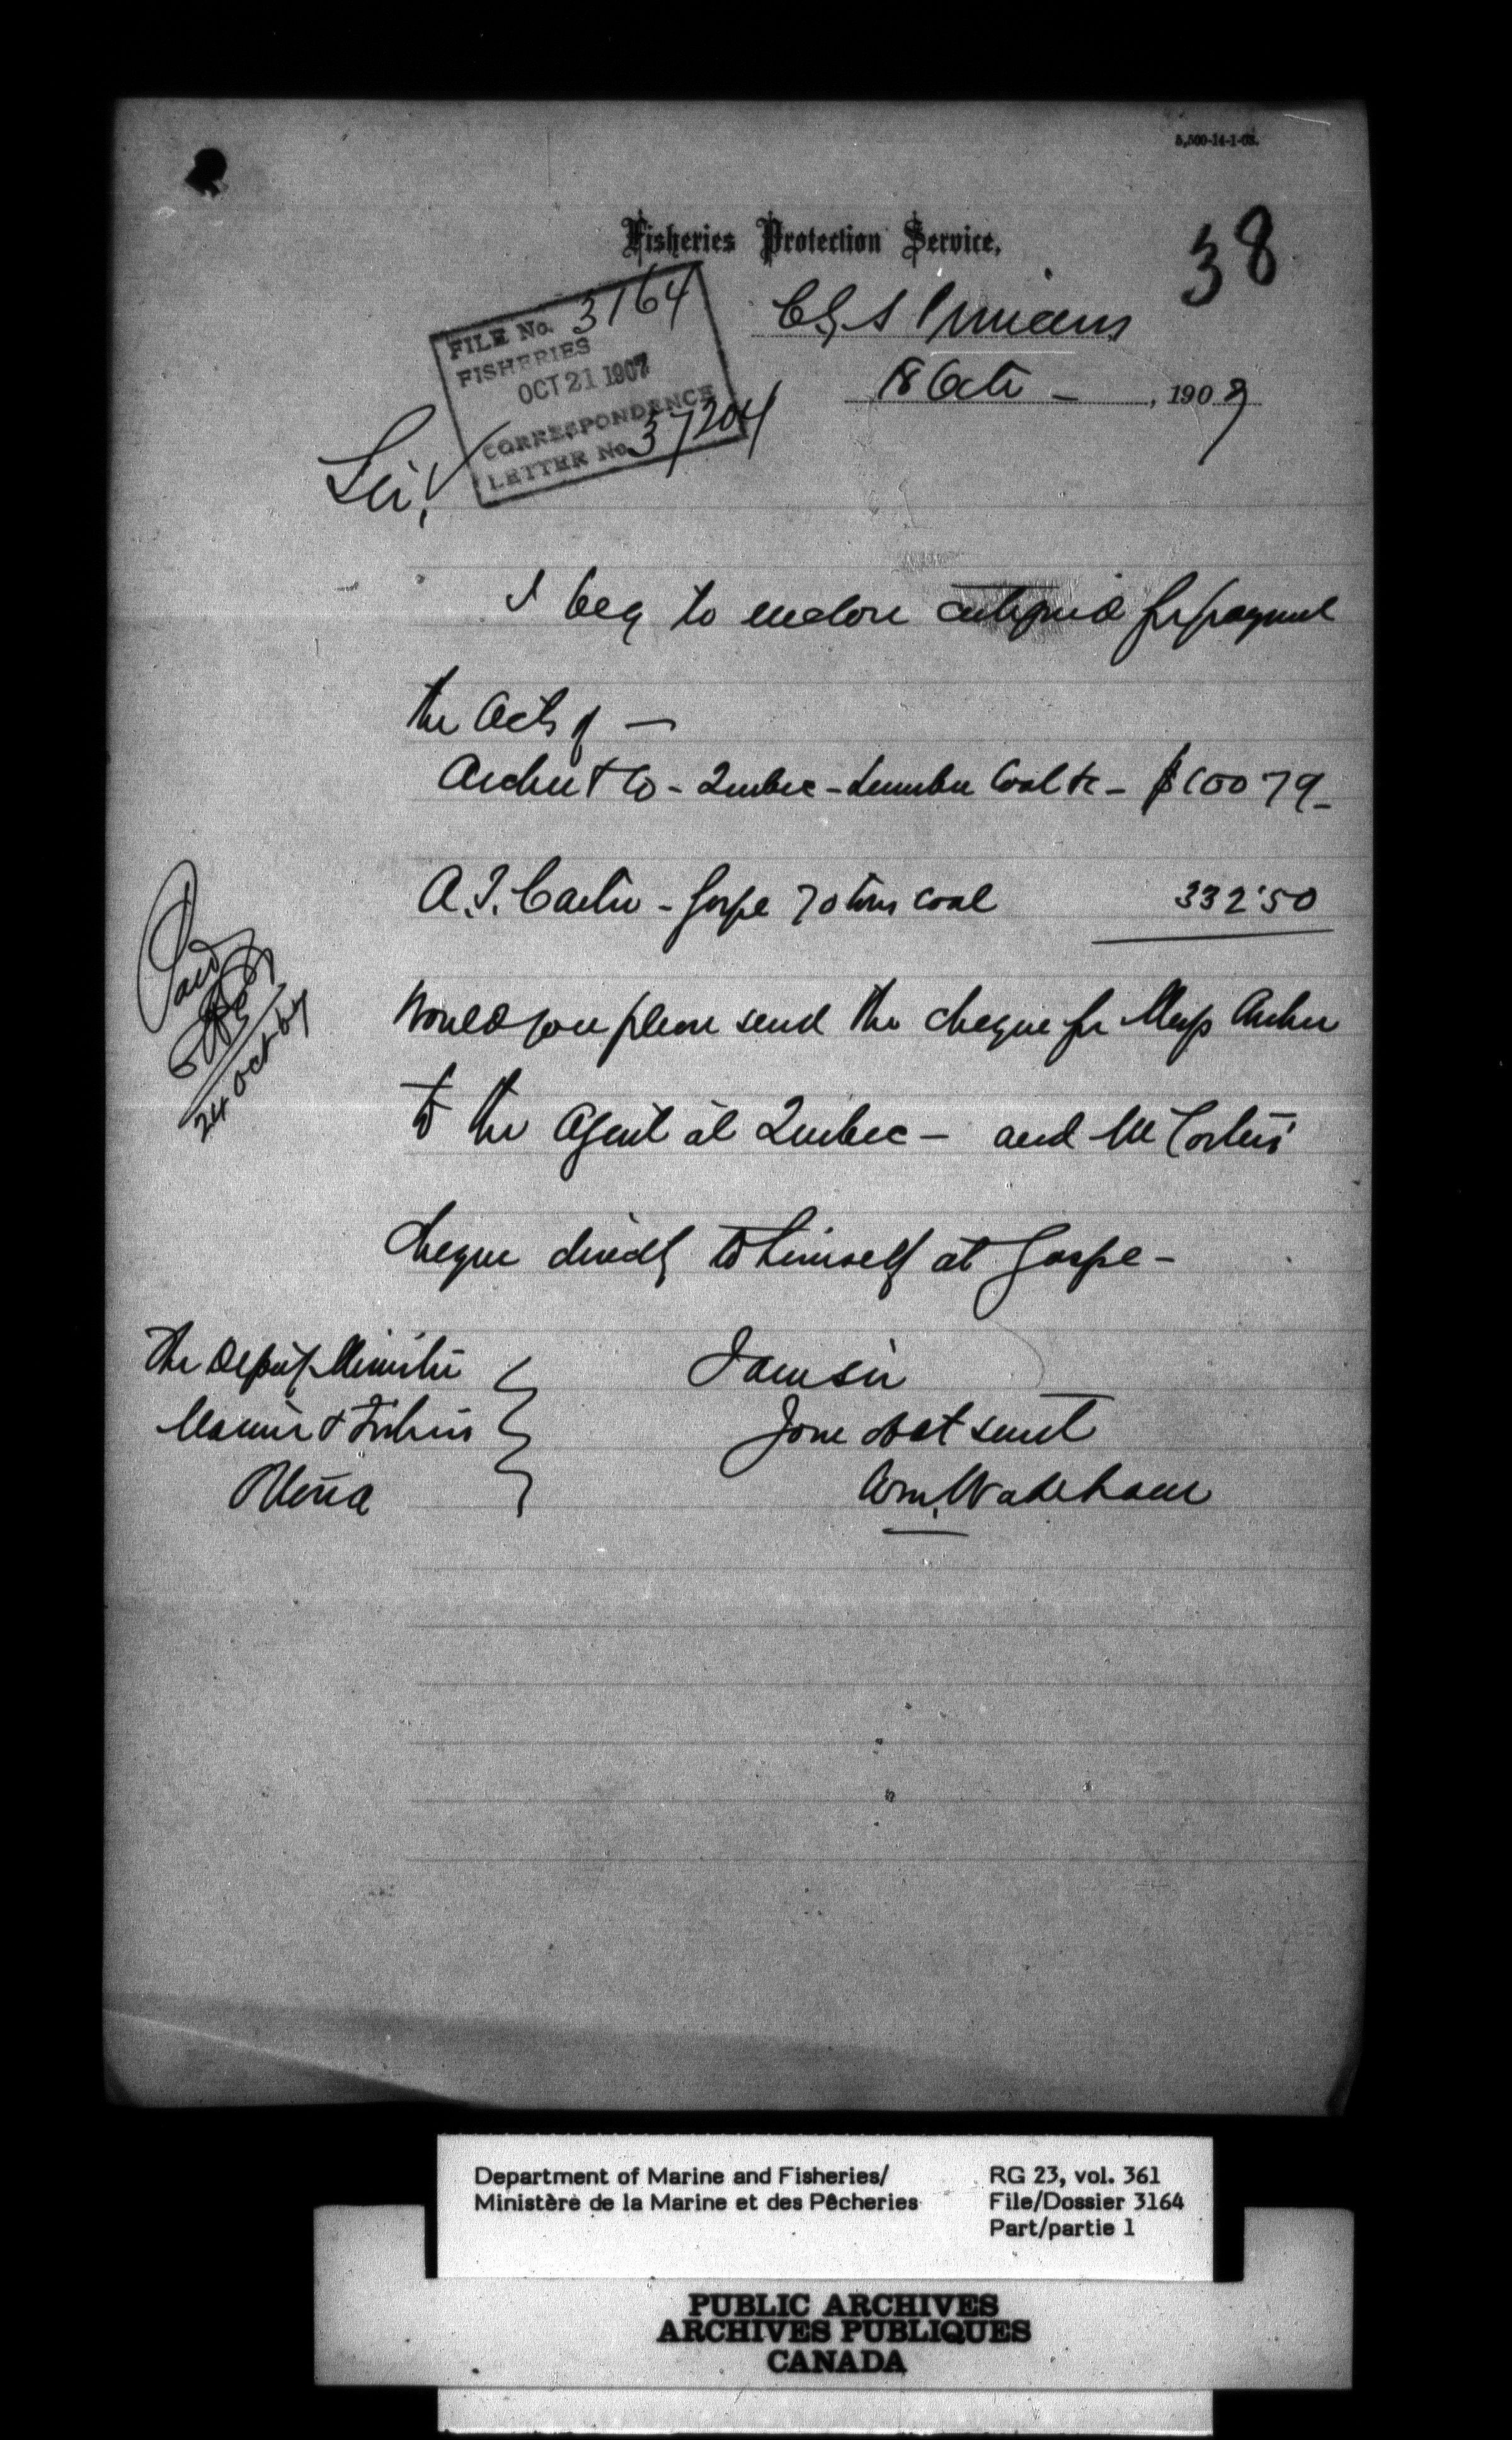 5,500-14-1-03.
Fisheries Protection Service,
38
CGS Princess
18 Octr - , 1907
FILE No. 3164
FISHERIES
OCT 21 1907
CORRESPONDENCE
LETTER No. 37204
Sir,
I beg to enclose certified for payment
the Accts of —
Archer & Co - Quebec - Lumber Coal &c - $100 79 -
A. J. Carter - Gaspe 70 tons coal 332.50
Would you please send the cheque for Messrs Archer
to the Agent at Quebec - and Mr Carters
cheque directly to himself at Gaspe -
Paid
24 Oct 07
I am sir
Your obdt servt
Wm. Wakeham
The Deputy Minister
Marine & Fisheries
Ottawa
Department of Marine and Fisheries/
Ministère de la Marine et des Pêcheries
RG 23, vol. 361
File/Dossier 3164
Part/partie 1
PUBLIC ARCHIVES
ARCHIVES PUBLIQUES
CANADA